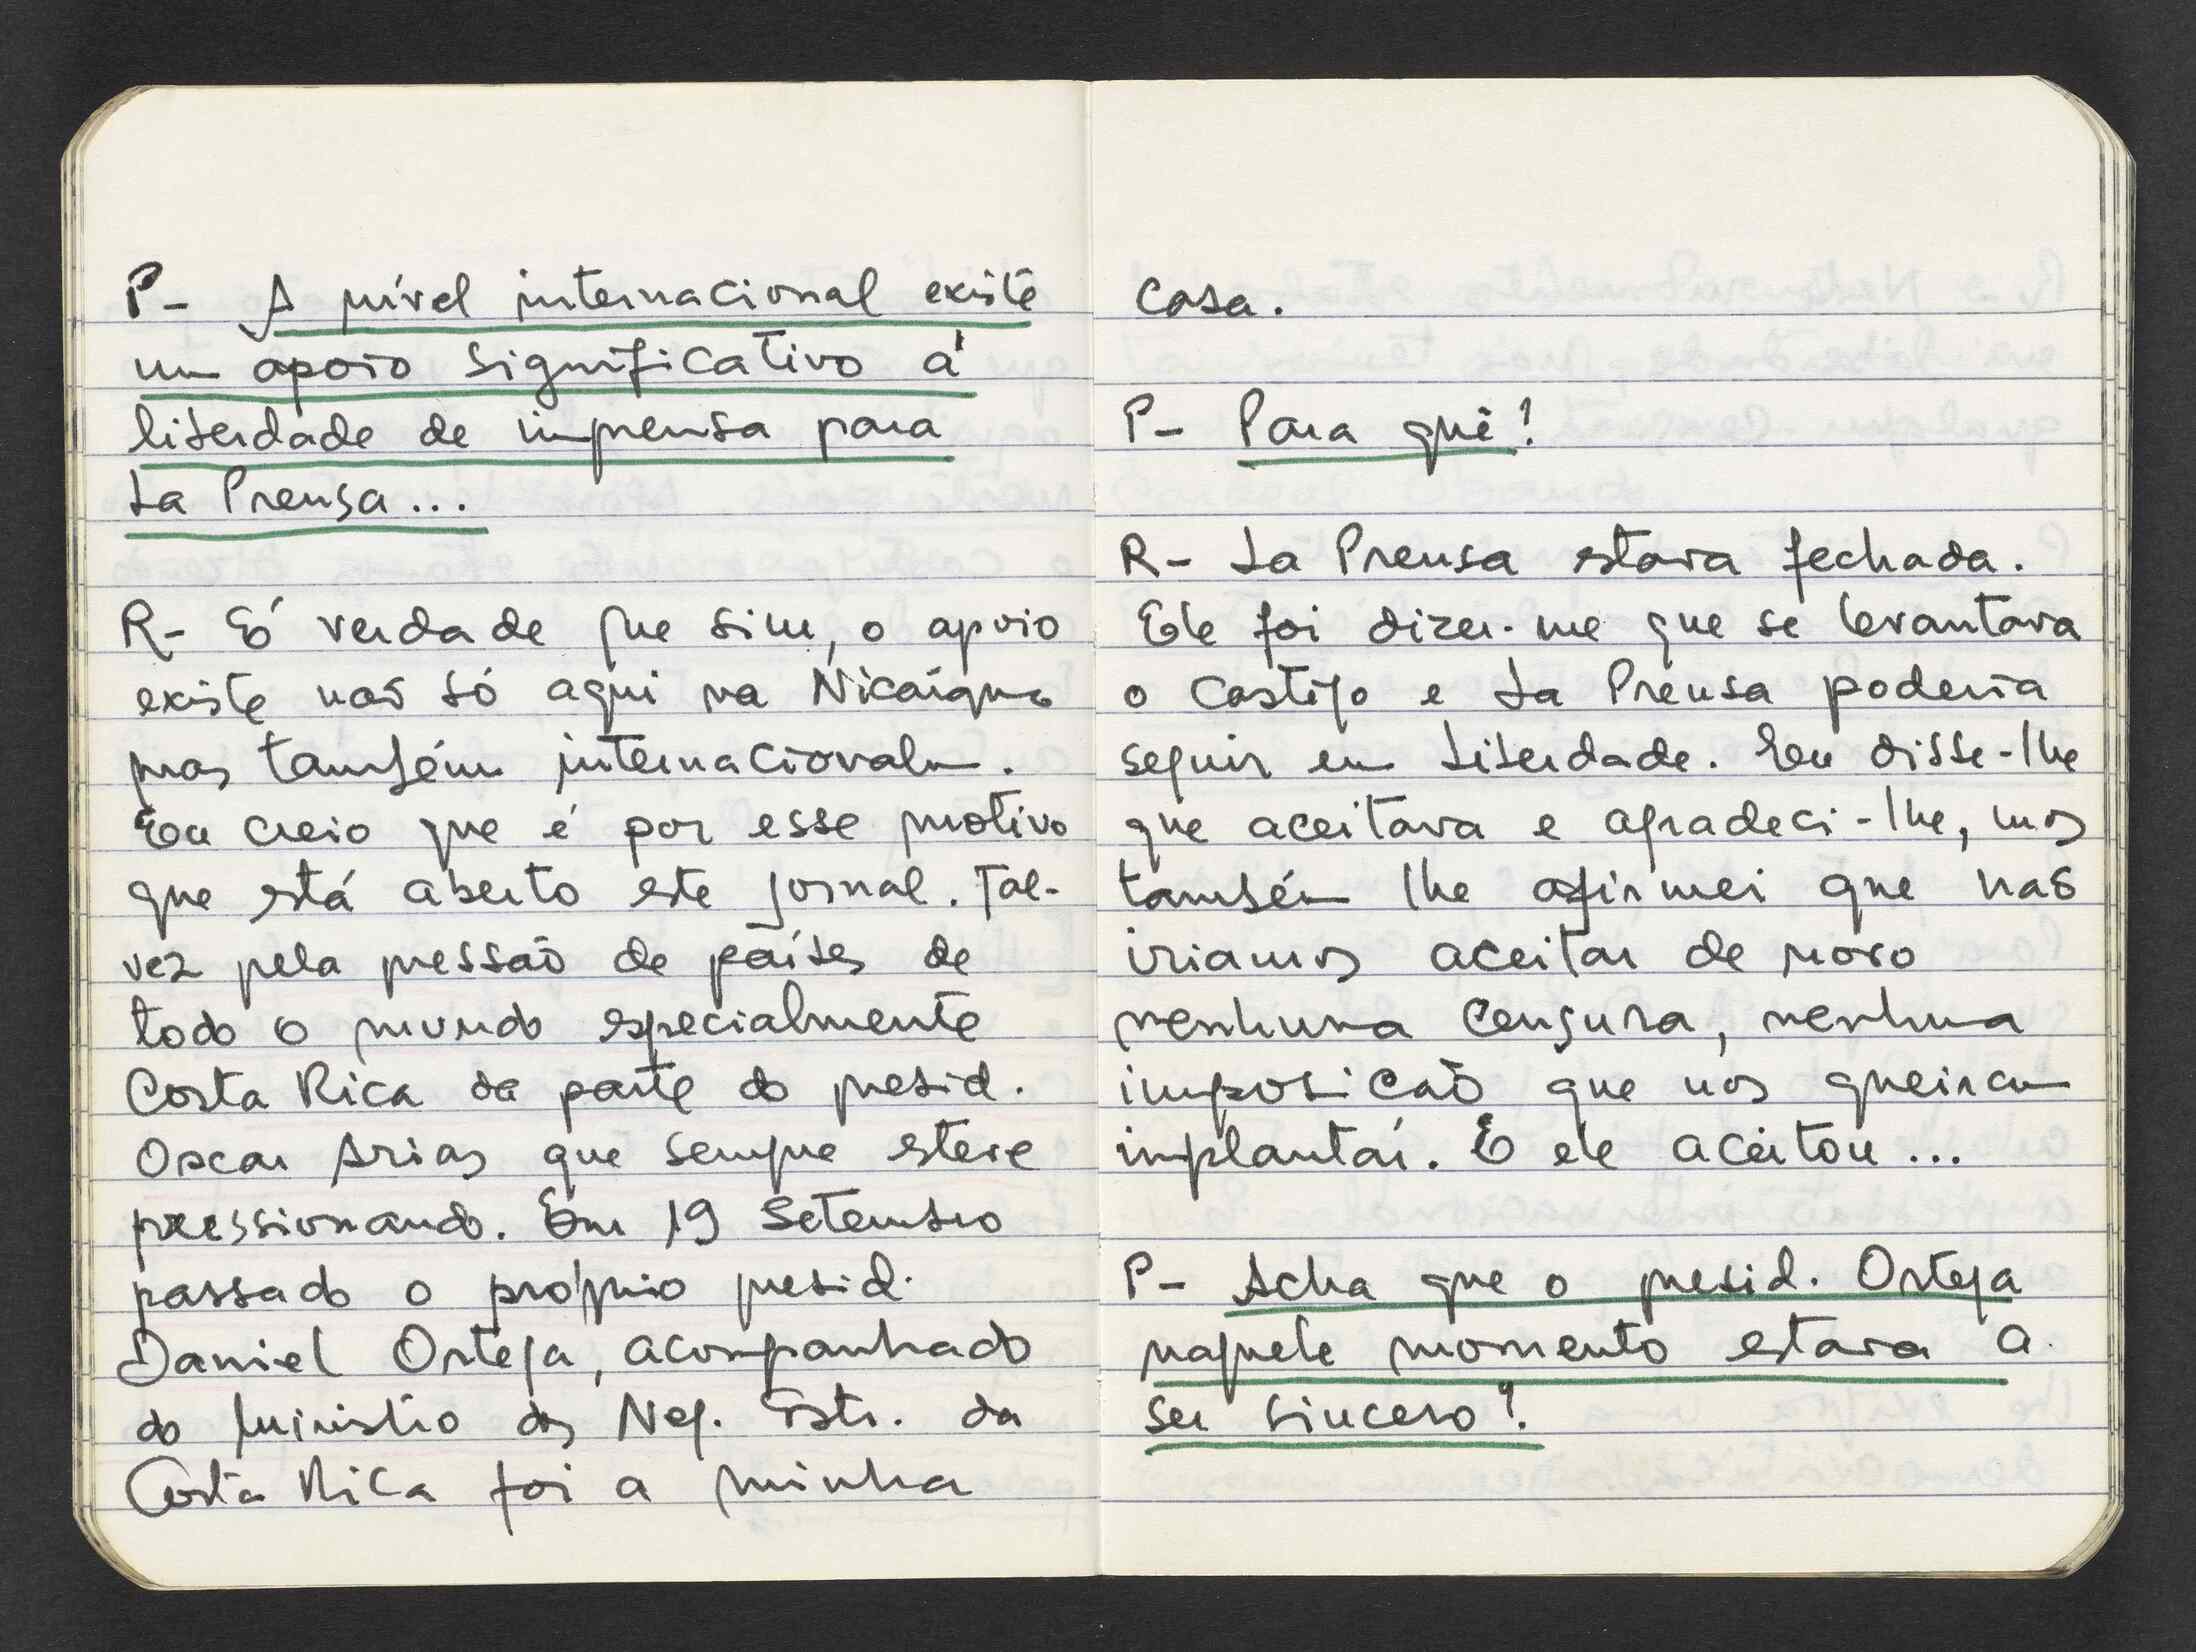 P- A nível internacional existe
um apoio significativo à
liberdade de imprensa para
La Prensa...
R- É verdade que sim, o apoio
existe não só aqui na Nicarágua
mas também internacionalm.
Eu creio que é por esse motivo
que está aberto este jornal. Tal-
vez pela pressão de países de
todo o mundo especialmente
Costa Rica da parte do presid.
Oscar Arias que sempre esteve
pressionando. Em 19 Setembro
passado o próprio presid.
Daniel Ortega, acompanhado
do ministro dos Neg. Estr. da
Costa Rica foi a minha
casa.
P- Para quê?
R- La Prensa estava fechada.
Ele foi dizer-me que se levantava
o castigo e La Prensa poderia
seguir em liberdade. Eu disse-lhe
que aceitava e agradeci-lhe, mas
também lhe afirmei que não
iriamos aceitar de novo
nenhuma censura, nenhuma
imposicão que nos queiram
implantar. E ele aceitou...
P- Acha que o presid. Ortega
naquele momento estava a
ser sincero?